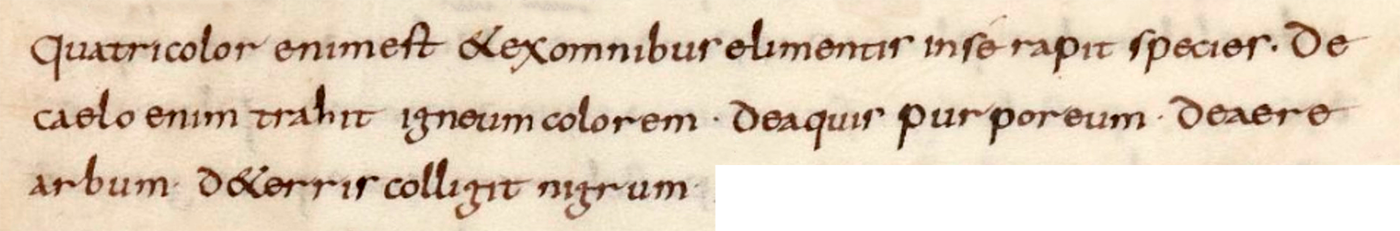 Quatricolor enimest &exomnibus elimentis insé rapit species. De
caelo enim trahit igneum colorem · Deaquis purporeum · Deaere
arbum · D&erris colligit nigrum